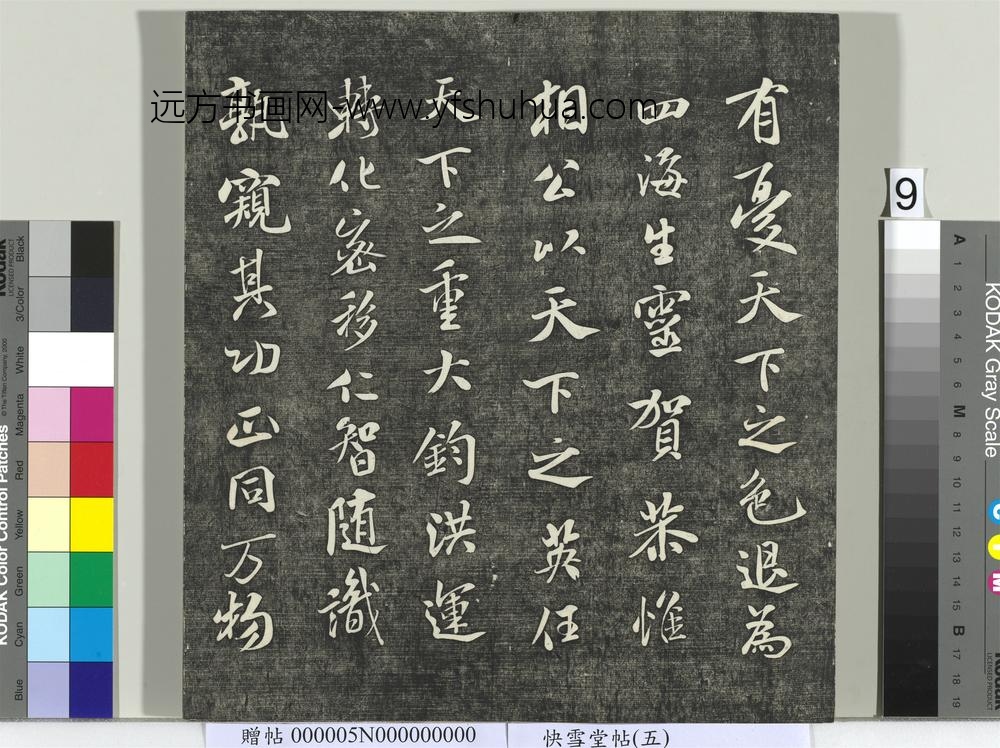 有憂天下之色退為
四海生靈賀恭惟
相公以天下之英任
天下之重大鈞洪運
轉化密移仁智隨識
孰窺其功正同万物
远方书画网-www.yfshuhua.com
9
贈帖 000005N000000000
快雪堂帖(五)
KODAK Color Control Patches
Kodak
LICENSED PRODUCT
© The Tiffen Company, 2000
Blue
Cyan
Green
Yellow
Red
Magenta
White
3/Color
Black
KODAK Gray Scale
A 1 2 3 4 5 6 M 8 9 10 11 12 13 14 15 B 17 18 19
C
Y
M
Kodak
LICENSED PRODUCT